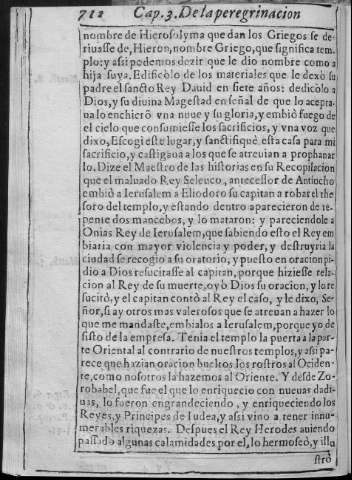 712 Cap. 3. De la peregrinacion
nombre de Hierosolyma que dan los Griegos se de-
riuasse de, Hieron, nombre Griego, que significa tem
plo: y assi podemos dezir que le dio nombre como a
hija suya. Edificòlo de los materiales que le dexò su
padre el sancto Rey Dauid en siete años: dedicòlo a
Dios, y su diuina Magestad en señal de que lo acepta-
ua lo enchierò vna nuue y su gloria, y embiò fuego de
el cielo que consumiesse los sacrificios, y vna voz que
dixo, Escogi este lugar, y sanctifiquè esta casa para mi
sacrificio, y castigaua a los que se atreuian a prophanar
lo. Dize el Maestro de las historias en su Recopilacion
que el maluado Rey Seleuco, antecessor de Antiocho
embiò a Ierusalem a Eliodoro su capitan a robar el the
soro del templo, y estando dentro aparecieron de re-
pente dos mancebos, y lo mataron: y pareciendole a
Onias Rey de Ierusalem, que sabiendo esto el Rey em
biaria con mayor violencia y poder, y destruyria la
ciudad se recogio a su oratorio, y puesto en oracion pi-
dio a Dios resucitasse al capitan, porque hiziesse rela-
cion al Rey de su muerte, oyò Dios su oracion, y lo re
sucitò, y el capitan contò al Rey el caso, y le dixo, Se-
ñor, si ay otros mas valerosos que se atreuan a hazer lo
que me mandaste, embialos a Ierusalem, porque yo de-
sisto de la empresa. Tenia el templo la puerta a la par-
te Oriental al contrario de nuestros templos, y assi pa-
rece que hazian oracion bueltos los rostros al Ociden-
te, como nosotros la hazemos al Oriente. Y desde Zo-
robabel, que fue el que lo enriquecio con nueuas dadi-
uas, lo fueron engrandeciendo, y enriqueciendo los
Reyes, y Principes de Iudea, y assi vino a tener innu-
merables riquezas. Despues el Rey Herodes auiendo
passado algunas calamidades por el, lo hermoseò, y illu
strò